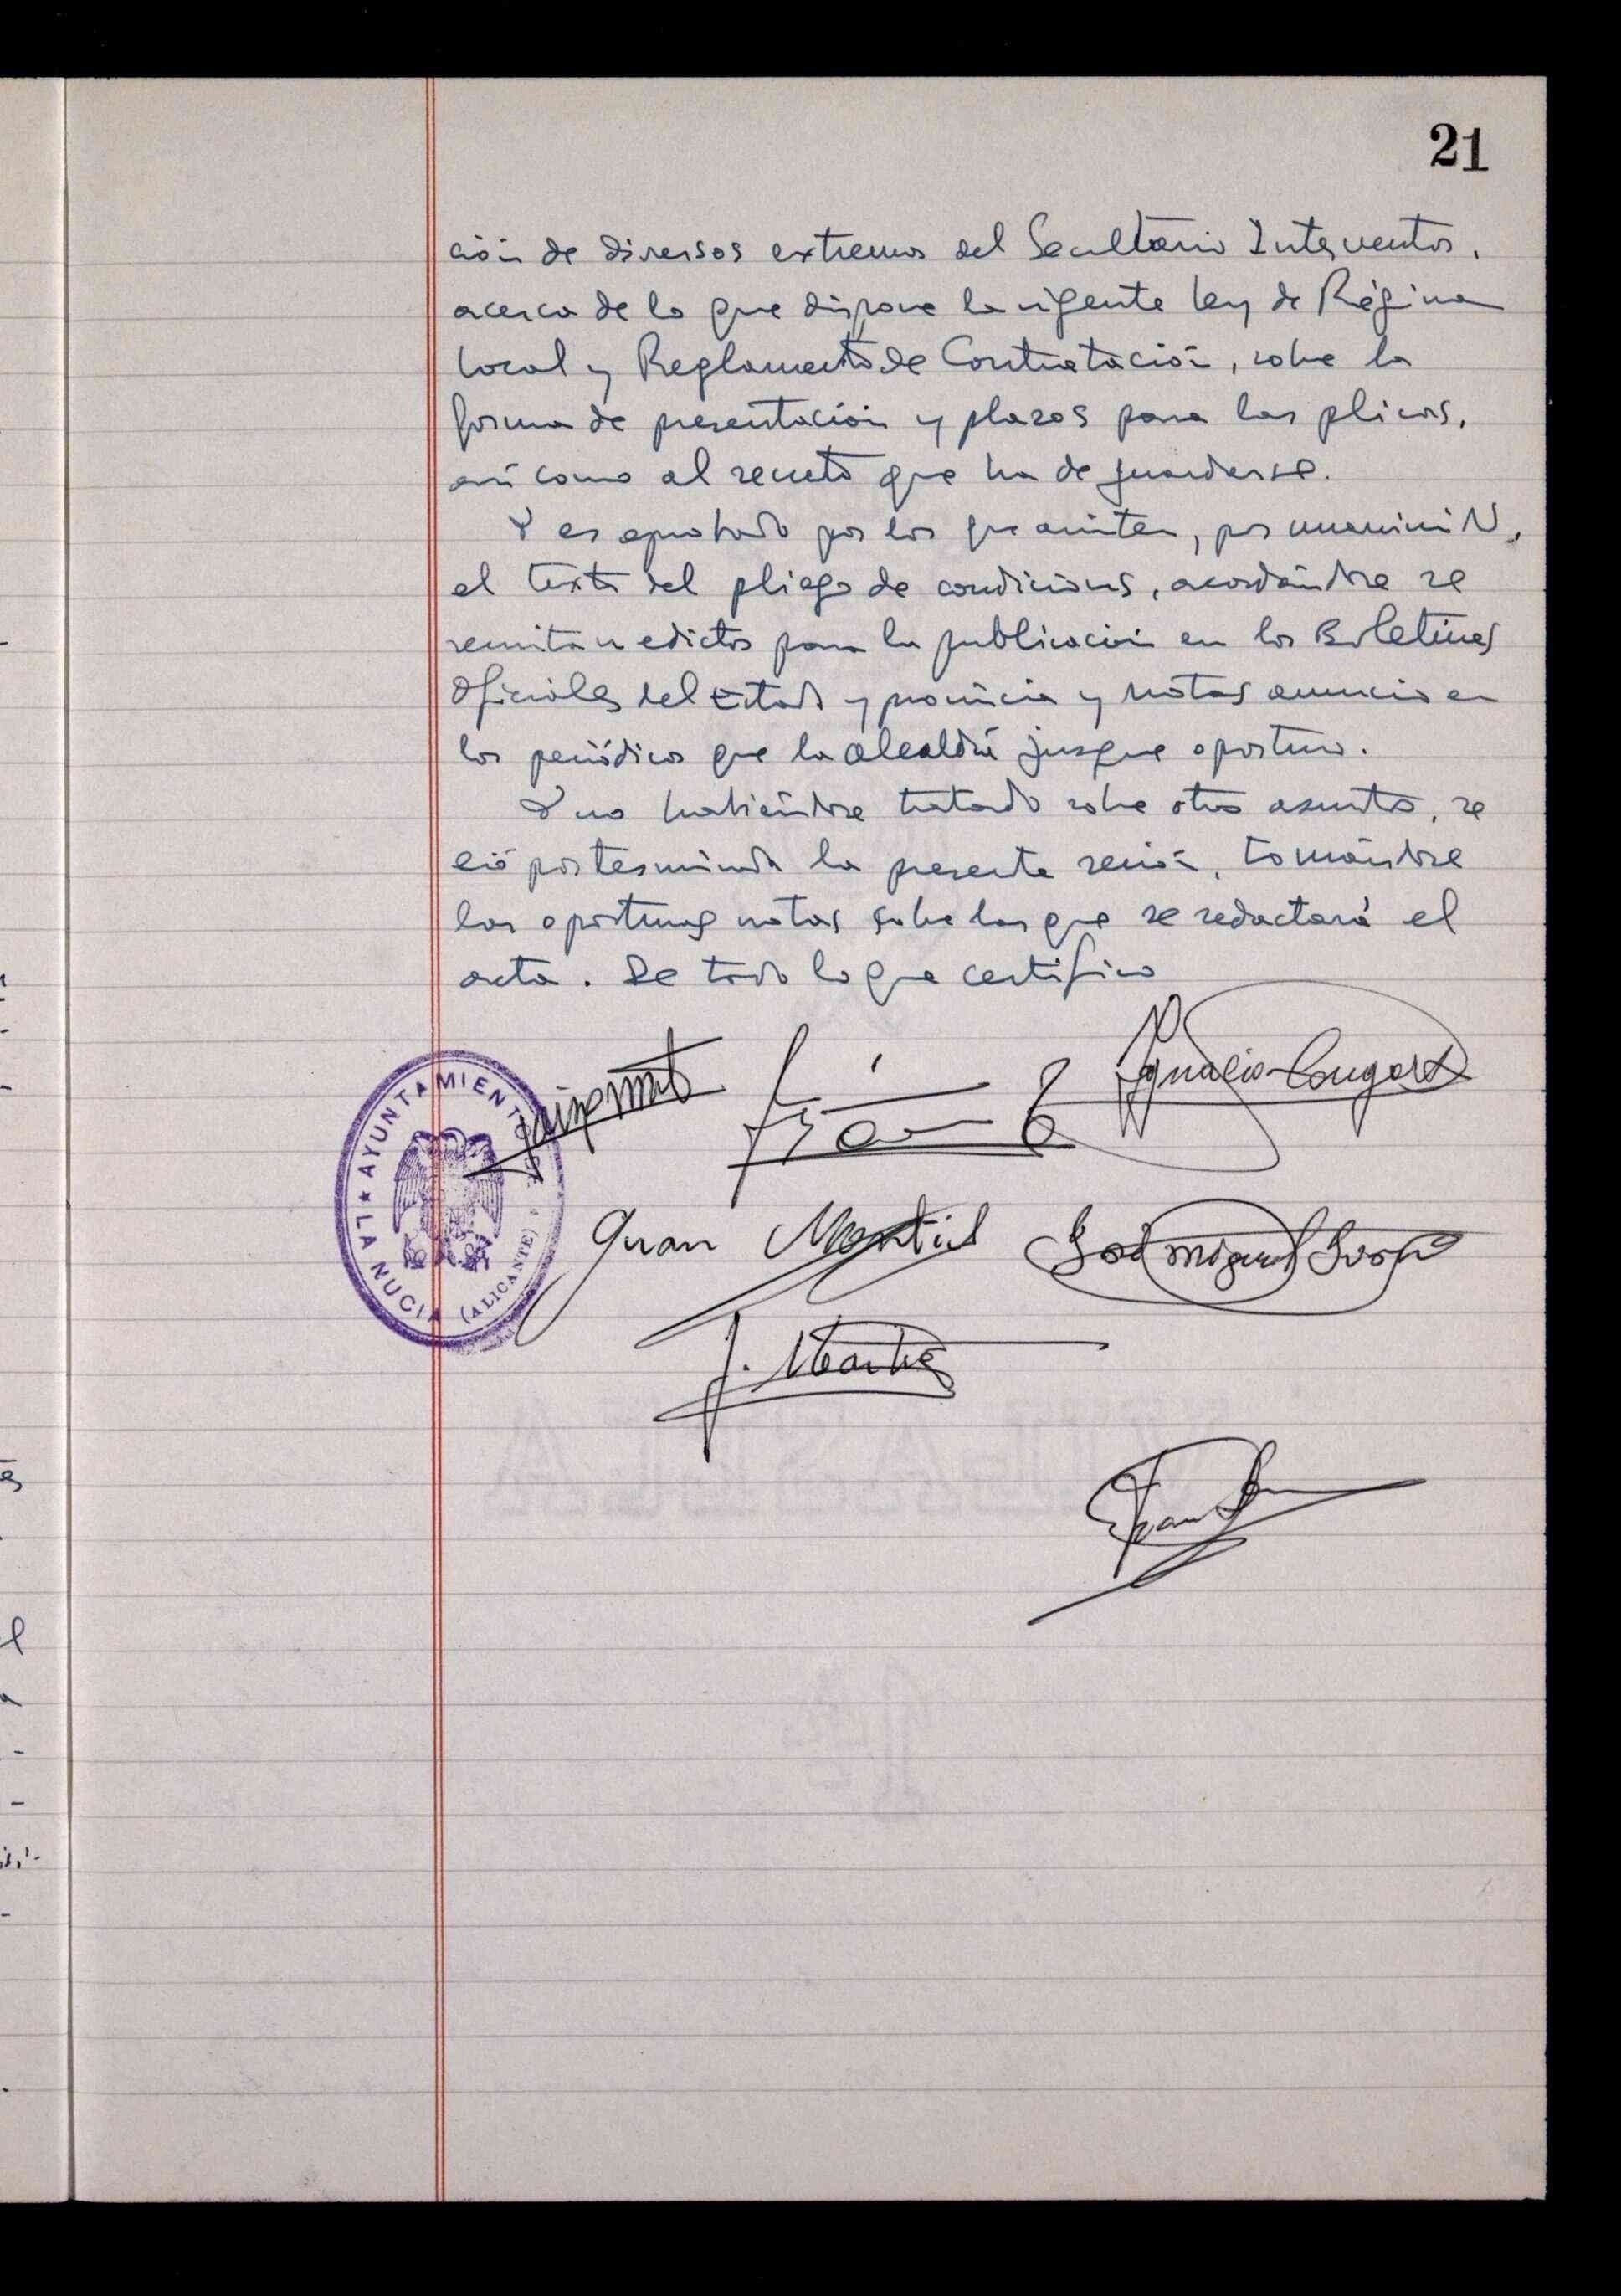 21
ción de diversos extremos del Secretario Interventor,
acerca de lo que dispone la vigente ley de Régimen
Local y Reglamento de Contratación, sobre la
forma de presentación y plazos para las plicas,
así como al secreto que ha de guardarse.
Y es aprobado por los que asisten, por unanimidad,
el texto del pliego de condiciones, acordándose se
remitan edictos para la publicación en los Boletines
Oficiales del Estado y provincia y notas anuncio en
los periódicos que la alcaldía juzgue oportuno.
Y no habiéndose tratado sobre otros asuntos, se
dió por terminada la presente sesión, tomándose
las oportunas notas sobre las que se redactará el
acta. De todo lo que certifico
Ignacio
AYUNTAMIENTO DE LA NUCIA (ALICANTE)
Juan José Miguel
J.